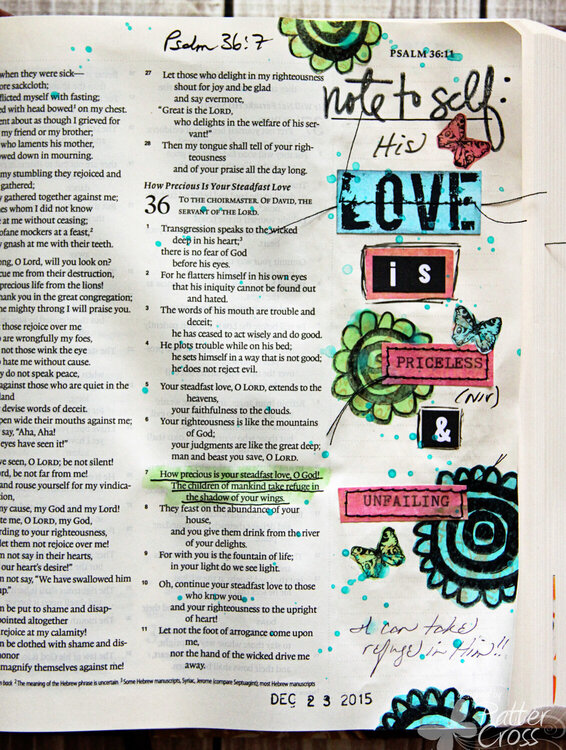 Psalm 36:7
PSALM 36:11
when they were sick—
ore sackcloth;
flicted myself with fasting;
ed with head bowed¹ on my chest.
ent about as though I grieved for
my friend or my brother;
who laments his mother,
owed down in mourning.
my stumbling they rejoiced and
gathered;
y gathered together against me;
es whom I did not know
e at me without ceasing;
ofane mockers at a feast,²
y gnash at me with their teeth.
ong, O LORD, will you look on?
cue me from their destruction,
precious life from the lions!
hank you in the great congregation;
he mighty throng I will praise you.
those rejoice over me
o are wrongfully my foes,
not those wink the eye
o hate me without cause.
y do not speak peace,
against those who are quiet in the
land
devise words of deceit.
pen wide their mouths against me;
say, “Aha, Aha!
eyes have seen it!”
ve seen, O LORD; be not silent!
rd, be not far from me!
and rouse yourself for my vindica-
tion,
my cause, my God and my Lord!
te me, O LORD, my God,
rding to your righteousness,
let them not rejoice over me!
m not say in their hearts,
our heart's desire!”
m not say, “We have swallowed him
up.”
n be put to shame and disap-
pointed altogether
rejoice at my calamity!
n be clothed with shame and dis-
onor
magnify themselves against me!
27 Let those who delight in my righteousness
shout for joy and be glad
and say evermore,
“Great is the LORD,
who delights in the welfare of his ser-
vant!”
28 Then my tongue shall tell of your righ-
teousness
and of your praise all the day long.
How Precious Is Your Steadfast Love
36 TO THE CHOIRMASTER. OF DAVID, THE
SERVANT OF THE LORD.
1 Transgression speaks to the wicked
deep in his heart;³
there is no fear of God
before his eyes.
2 For he flatters himself in his own eyes
that his iniquity cannot be found out
and hated.
3 The words of his mouth are trouble and
deceit;
he has ceased to act wisely and do good.
4 He plots trouble while on his bed;
he sets himself in a way that is not good;
he does not reject evil.
5 Your steadfast love, O LORD, extends to the
heavens,
your faithfulness to the clouds.
6 Your righteousness is like the mountains
of God;
your judgments are like the great deep;
man and beast you save, O LORD.
7 How precious is your steadfast love, O God!
The children of mankind take refuge in
the shadow of your wings.
8 They feast on the abundance of your
house,
and you give them drink from the river
of your delights.
9 For with you is the fountain of life;
in your light do we see light.
10 Oh, continue your steadfast love to those
who know you,
and your righteousness to the upright
of heart!
11 Let not the foot of arrogance come upon
me,
nor the hand of the wicked drive me
away.
back ² The meaning of the Hebrew phrase is uncertain ³ Some Hebrew manuscripts, Syriac, Jerome (compare Septuagint); most Hebrew manuscripts
DEC 23 2015
note to self:
His
LOVE
is
PRICELESS
(NIV)
&
UNFAILING
I can take
refuge in Him!!
Batter
Cross